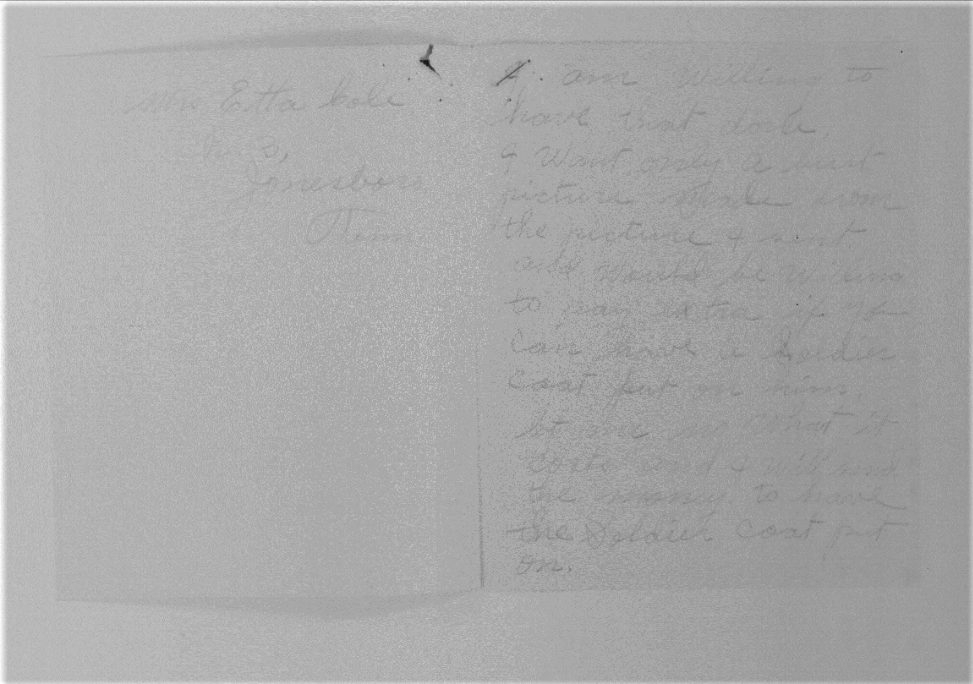 Mrs Etta Cole
R. 3,
Jonesboro
Tenn
I. am willing to
have that done,
I want only a bust
picture made from
the picture I sent
and would be willing
to pay extra if you
can have a soldier
coat put on him,
let me no what it
costs and I will send
the money to have
the soldier coat put
on.